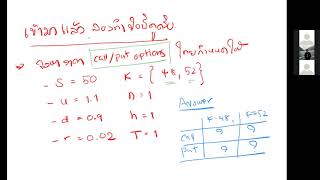 เข้ามาแล้ว ลองทำข้อนี้ดูครับ
call/put options
- S = 50 K = {48, 52}
- u = 1.1 n = 1
- d = 0.9 h = 1
- r = 0.02 T = 1
Answer
K=48 K=52
call ? ?
put ? ?